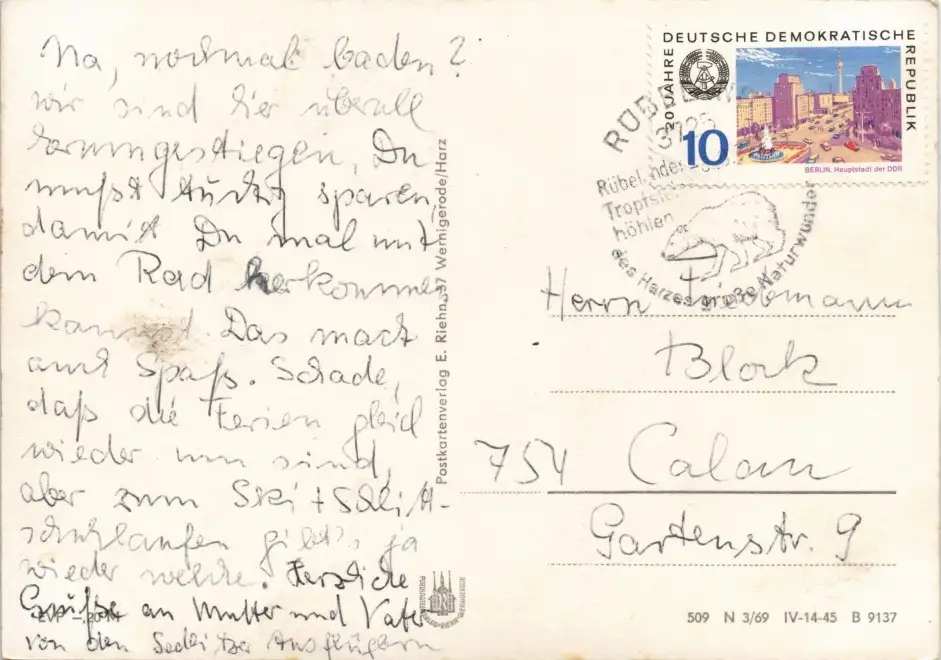 Na, nochmal baden?
wir sind hier überall
rumgestiegen, Du
mußt tüchtig sparen,
damit Du mal mit
dem Rad herkommen
kannst. Das macht
auch Spaß. Schade,
daß die Ferien gleich
wieder um sind,
aber zum Ski + Schlitt-
schuhlaufen gibt's ja
wieder welche. Herzliche
Grüße an Mutter und Vater
von den Ausflüglern
Postkartenverlag E. Riehn, 37 Wernigerode/Harz
20 JAHRE
DEUTSCHE DEMOKRATISCHE
REPUBLIK
10
BERLIN, Hauptstadt der DDR
3725
Rübeländer
Tropfstein-
höhlen
des Harzes große Naturwunder
Herrn
Block
754 Calau
Gartenstr. 9
509 N 3/69 IV-14-45 B 9137